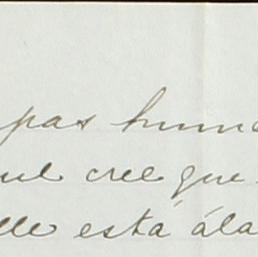 pas huma
ul cree que
lle está ála